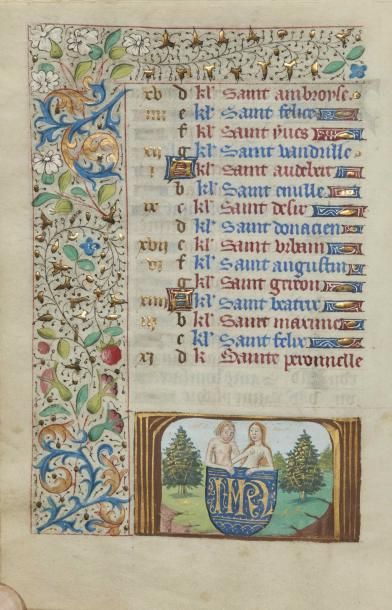 xv d kl' Saint ambroyse
iiii e kl' Saint felice
f kl' Saint yues
xii g kl' Saint vandrille
i A kl' Saint audebert
b kl' Saint emille
ix c kl' Saint desir
d kl' Saint donacien
xvii e kl' Saint vrbain
vi f kl' Saint augustin
g kl' Saint
xiiii A kl' Saint
iii b kl' Saint
c kl' Saint felix
xi d k Sainte peronnelle